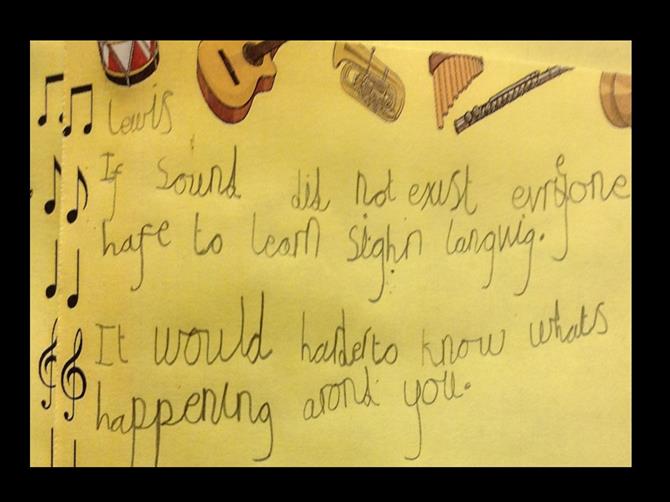 Lewis
If sound did not exist evryone
hafe to learn sighn languig.
It would harder to know whats
happening arond you.